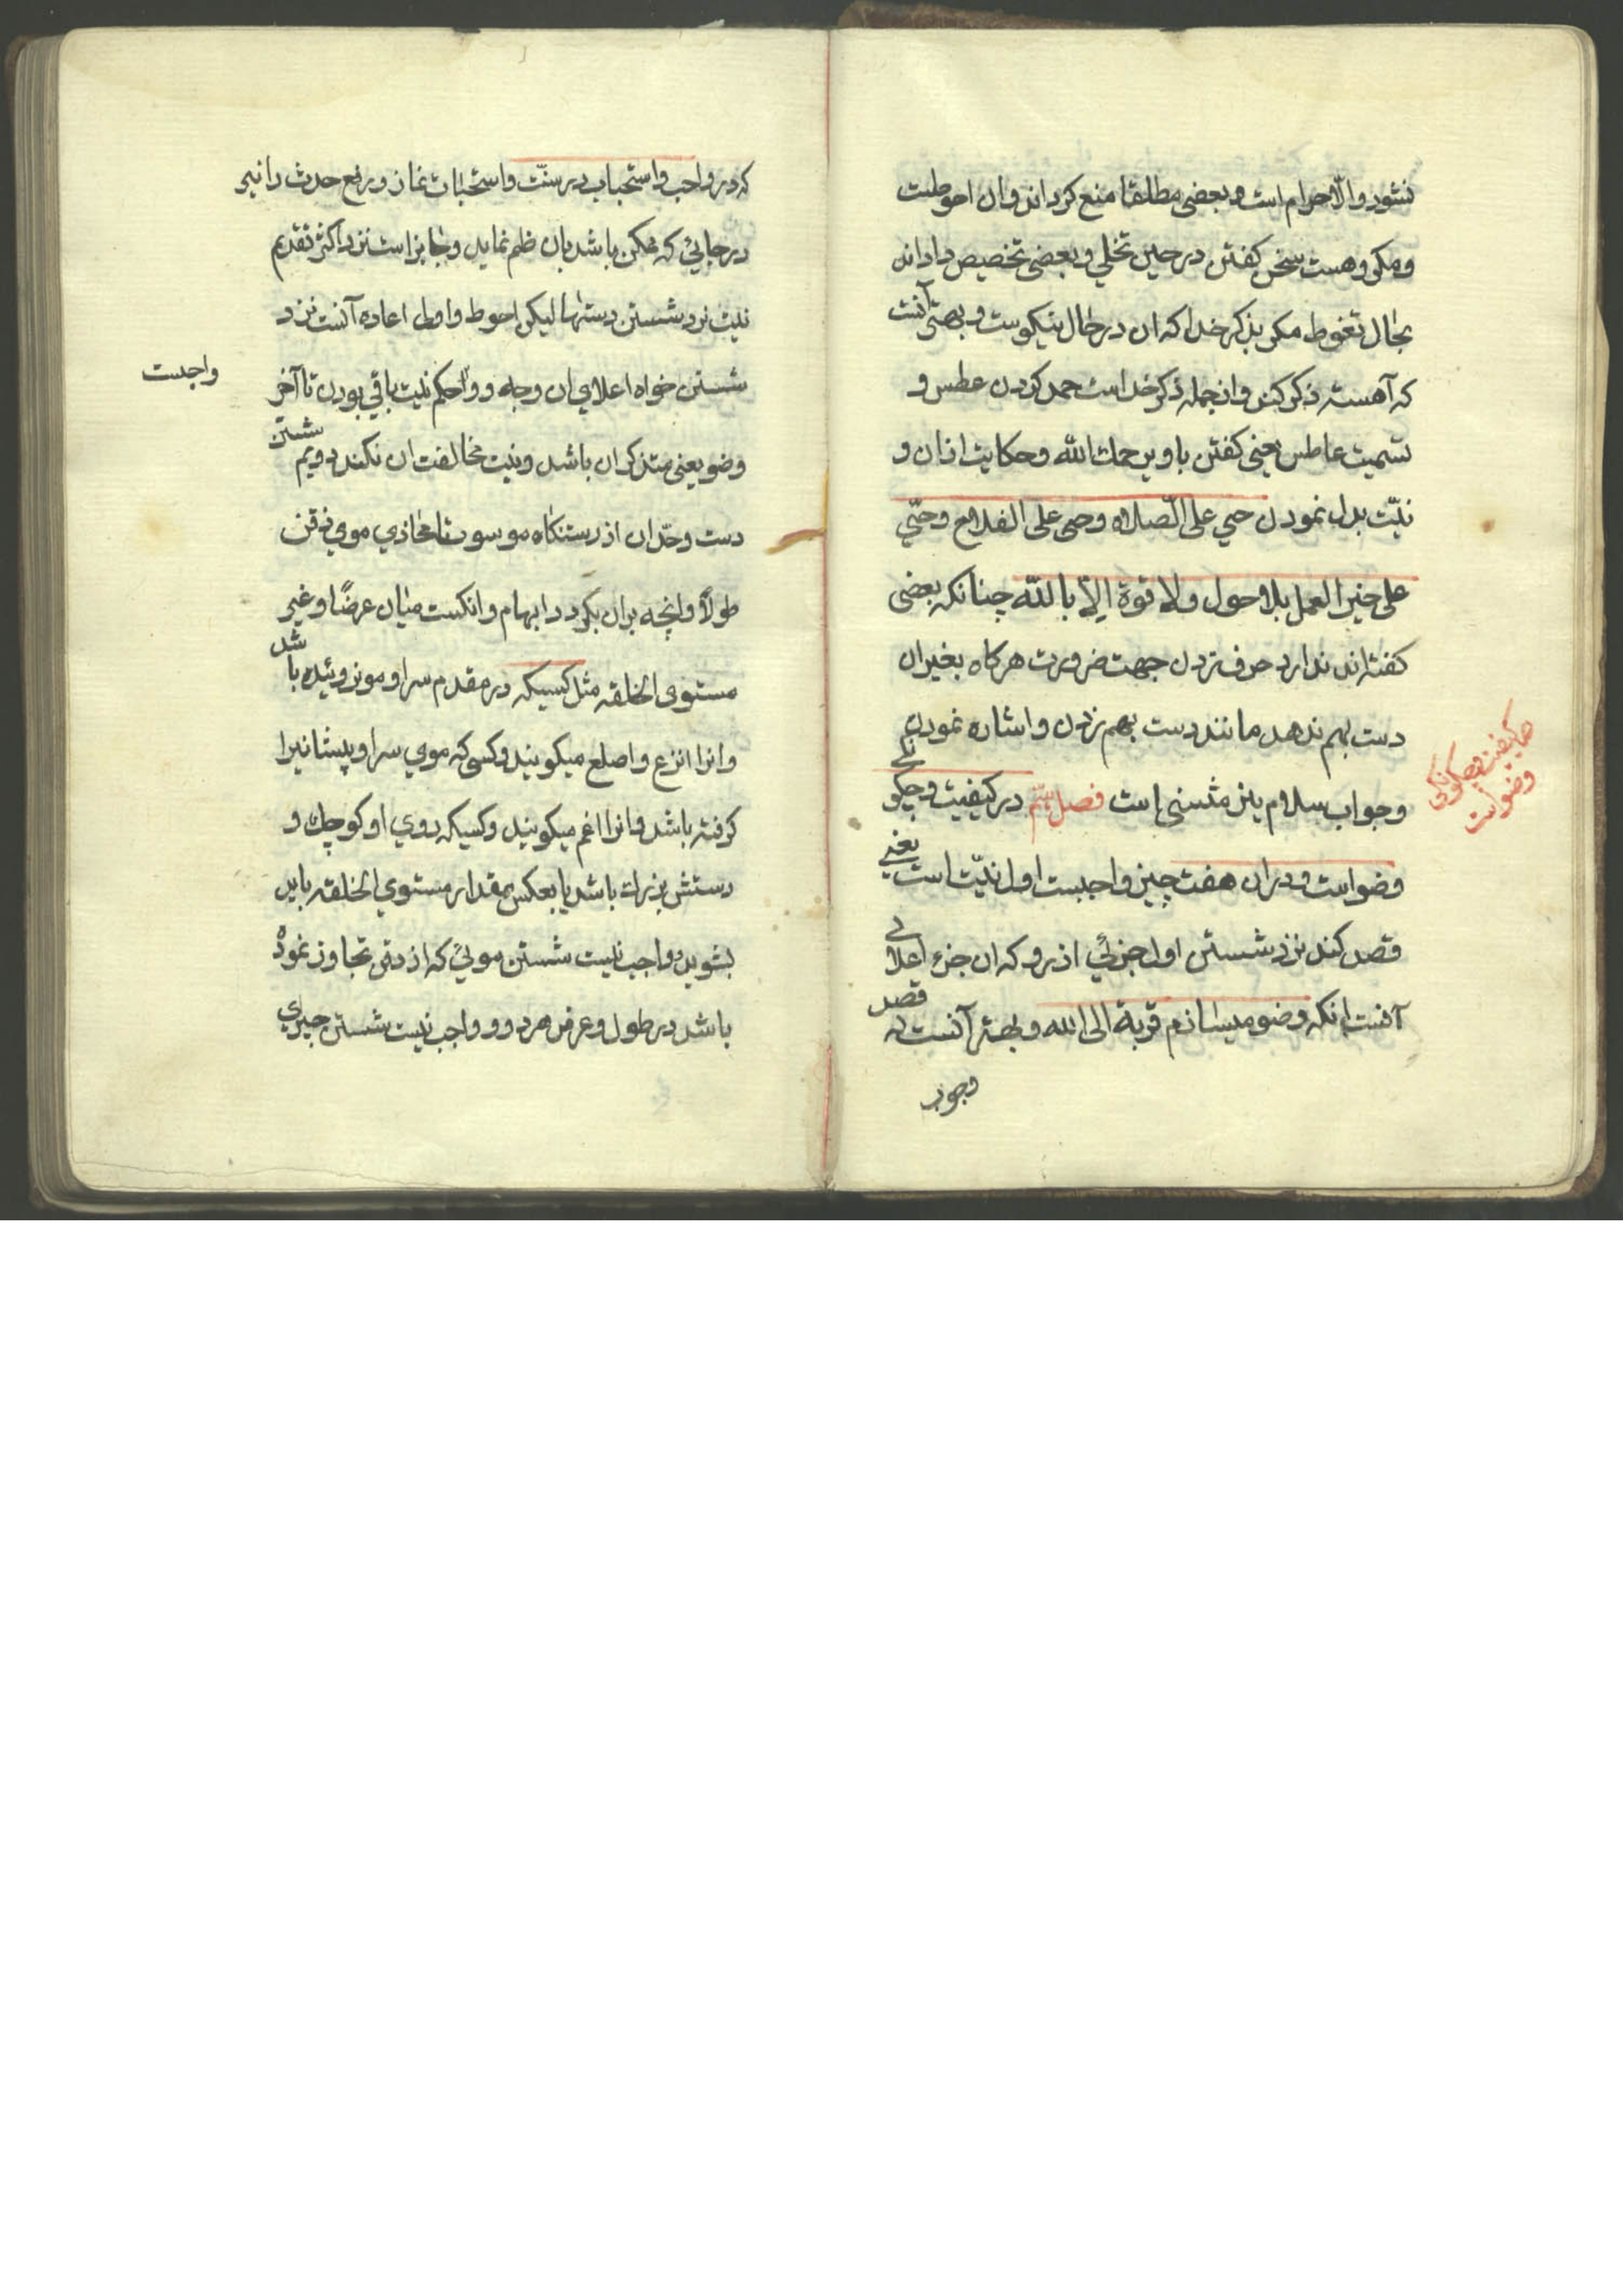 نشود والا حرام است و بعضی مطلقا منع کرده‌اند وان احوطست
و مکروهست سخن کفتن در حین تخلي و بعضی تخصیص داده‌اند
بحال تغوط مکر بذکر خدا که ان در حال نیکوست و بهتر آنست
که آهسته ذکر کند و از جمله ذکر خداست حمد کردن عطس و
تسمیت عاطس یعنی کفتن باو یرحمك الله و حکایت اذان و
نیّت بدل نمودن حي علی الصلاه وحی علی الفلاح وحيّ
علی خیر العمل بلا حول ولا قوة الّا بالله چنانکه بعضی
کفته‌اند ندارد حرف زدن جهت ضرورت هرکاه بغیر ان
دست بهم ندهد مانند دست بهم زدن و اشاره نمودن
و جواب سلام نیز مثنی است فصل در کیفیت و چکونکی
وضو است و در ان هفت چیز واجبست اول نیّت است یعنی
قصد کند نزد شستن اول جزئي از رو که ان جزء اعلای
آنست انکه وضو میسازم قربة الی الله و بهتر آنست که قصد
وجوب
کیفیت وچکونکی
وضو است
که در واجب و استحباب در سنّت و استحبابات نماز و رفع حدث را نیز
در جائي که ممکن باشد بان ضم نماید و جایز است نزد اکثر تقدیم
نیت نزد شستن دستها لیکن احوط و اولی اعاده آنست نزد
شستن خواه اعلای ان وجه و حکم نیت باقي بودن تا آخر
واجبست
وضو یعنی متذکر ان باشد و نیت مخالفت ان نکند دویم شستن
دست و حدّ ان از رستنکاه موسوت تا محاذي موي ذقن
طولاً وانچه بران بکردد ابهام و انکشت میان عرضًا و غیر
مستوی الخلقه مثل کسیکه در مقدم سر او مو نروئیده باشد
وانرا انزع و اصلع میکویند و کسی که موي سر او پیشانیرا
کرفته باشد وانرا اغم میکویند و کسیکه روي او کوچك و
دستش بزرك باشد یا بعکس بمقدار مستوي الخلقه باید
بشوید و واجب نیست شستن موئي که از ذقن تجاوز نموده
باشد در طول و عرض هر دو و واجب نیست شستن چیزي